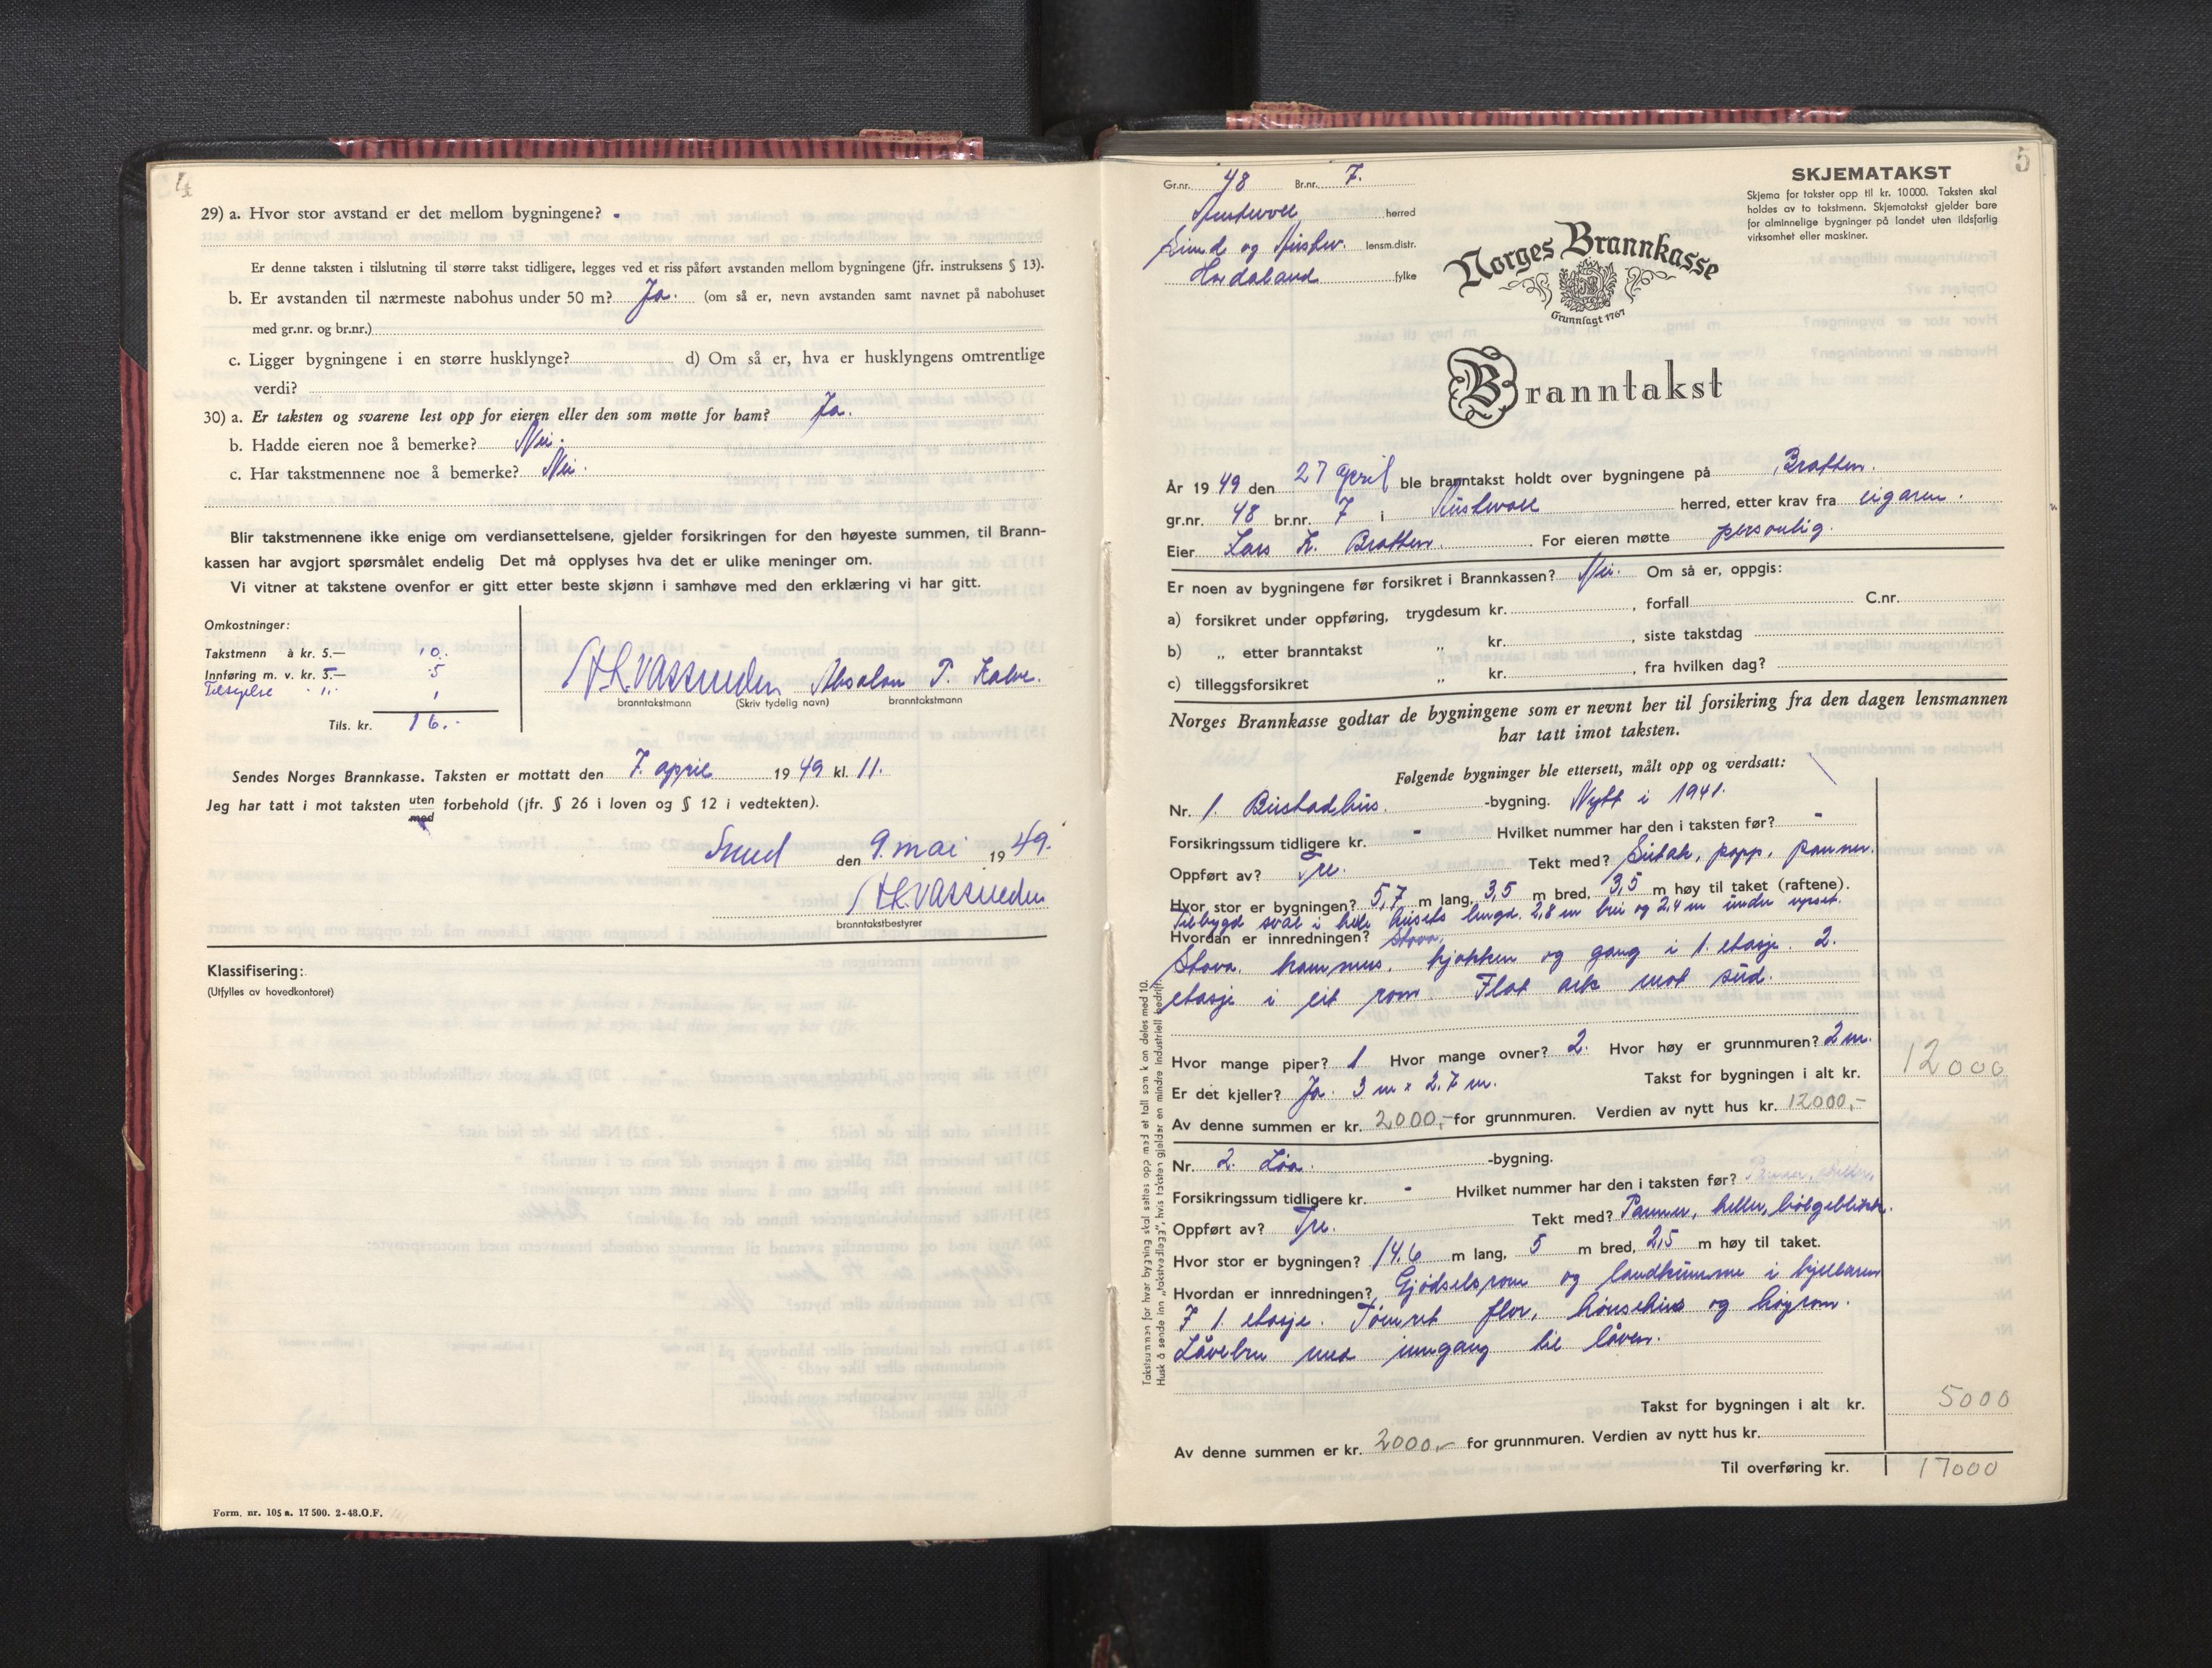 4
29) a. Hvor stor avstand er det mellom bygningene? -
Er denne taksten i tilslutning til større takst tidligere, legges ved et riss påført avstanden mellom bygningene (jfr. instruksens § 13).
b. Er avstanden til nærmeste nabohus under 50 m? Ja. (om så er, nevn avstanden samt navnet på nabohuset
med gr.nr. og br.nr.)
c. Ligger bygningene i en større husklynge? d) Om så er, hva er husklyngens omtrentlige
verdi?
30) a. Er taksten og svarene lest opp for eieren eller den som møtte for ham? Ja.
b. Hadde eieren noe å bemerke? Nei.
c. Har takstmennene noe å bemerke? Nei.
Blir takstmennene ikke enige om verdiansettelsene, gjelder forsikringen for den høyeste summen, til Brann-
kassen har avgjort spørsmålet endelig Det må opplyses hva det er ulike meninger om.
Vi vitner at takstene ovenfor er gitt etter beste skjønn i samhøve med den erklæring vi har gitt.
Omkostninger:
Takstmenn à kr. 5.— 10.
Innføring m. v. kr. 5.— 5
1
Tils. kr. 16.-
Absalon T. Kalve.
branntakstmann (Skriv tydelig navn) branntakstmann
Sendes Norges Brannkasse. Taksten er mottatt den 7. april 1949 kl. 11.
Jeg har tatt i mot taksten uten forbehold (jfr. § 26 i loven og § 12 i vedtekten).
med
Sund den 9. mai 1949.
branntakstbestyrer
Klassifisering:
(Utfylles av hovedkontoret)
Form. nr. 105 a. 17 500. 2-48.O.F.
5
Gr.nr. 48 Br.nr. 7.
Austevoll herred
Sund og Austev. lensm.distr.
Hordaland fylke
SKJEMATAKST
Skjema for takster opp til kr. 10000. Taksten skal
holdes av to takstmenn. Skjematakst gjelder bare
for alminnelige bygninger på landet uten ildsfarlig
virksomhet eller maskiner.
Norges Brannkasse
Grunnlagt 1767
Branntakst
År 1949 den 27 April ble branntakst holdt over bygningene på Bratten.
gr.nr. 48 br.nr. 7 i Austevoll herred, etter krav fra eigaren.
Eier Lars K. Bratten. For eieren møtte personlig.
Er noen av bygningene før forsikret i Brannkassen? Nei. Om så er, oppgis:
a) forsikret under oppføring, trygdesum kr. , forfall C.nr.
b) „ etter branntakst „ kr. , siste takstdag
c) tilleggsforsikret „ kr. , fra hvilken dag?
Norges Brannkasse godtar de bygningene som er nevnt her til forsikring fra den dagen lensmannen
har tatt imot taksten.
Følgende bygninger ble ettersett, målt opp og verdsatt:
Nr. 1. Bustadhus. -bygning. Nytt i 1941.
Forsikringssum tidligere kr. - Hvilket nummer har den i taksten før? -
Oppført av? Tre. Tekt med? Sutak, papp, panner.
Hvor stor er bygningen? 5,7 m lang, 3,5 m bred, 3,5 m høy til taket (raftene).
Tilbygd sval i hele husets lengd. 2,8 m brei og 2,4 m under upset.
Hvordan er innredningen? Stova,
Stova, kammers, kjøkken og gang i 1. etasje. 2.
etasje i eit rom. Flat ark mot sud.
Hvor mange piper? 1 Hvor mange ovner? 2. Hvor høy er grunnmuren? 2 m.
Er det kjeller? Ja. 3 m x 2.7 m. Takst for bygningen i alt kr. 12000
Av denne summen er kr. 2000,- for grunnmuren. Verdien av nytt hus kr. 12000,-
Nr. 2. Løa. -bygning.
Forsikringssum tidligere kr. - Hvilket nummer har den i taksten før? Panner, heller,
Oppført av? Tre. Tekt med? Panner, heller, bølgeblikk.
Hvor stor er bygningen? 14.6 m lang, 5 m bred, 2,5 m høy til taket.
Hvordan er innredningen? Gjødselsrom og landkumme i kjellaren
I 1. etasje. Tømret flor, hønsehus og høyrom.
Låvebru med inngang til låven.
Takst for bygningen i alt kr. 5000
Av denne summen er kr. 2000,- for grunnmuren. Verdien av nytt hus kr.
Til overføring kr. 17000
Takstsummen for hver bygning skal settes opp med et tall som kan deles med 10.
Husk å sende inn „takstvedlegg", hvis taksten gjelder en mindre industriell bedrift.